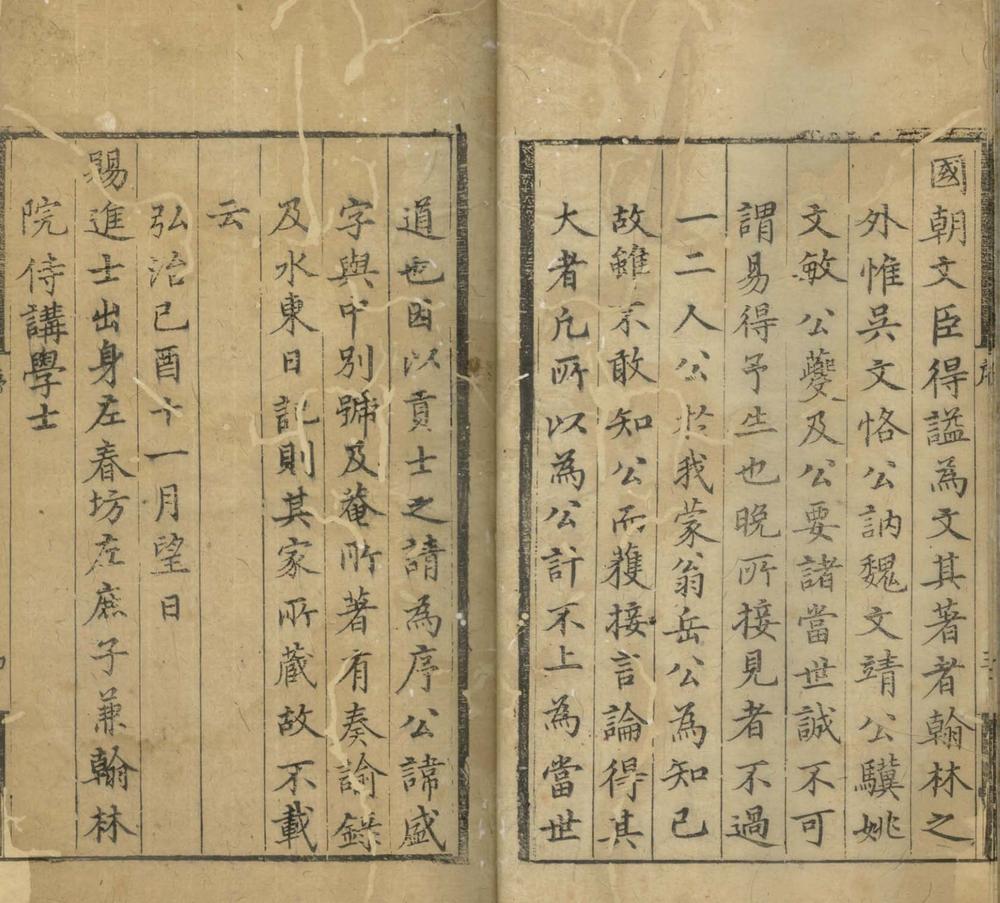 國朝文臣得謚為文其著者翰林之
外惟吳文恪公訥魏文靖公驥姚
文敏公夔及公要諸當世誠不可
謂易得予生也晚所接見者不過
一二人公於我蒙翁岳公為知己
故雖不敢知公而獲接言論得其
大者凡所以為公計不上為當世
道也因以貢士之請為序公諱盛
字與中別號及菴所著有奏論錄
及水東日記則其家所蔵故不載
云
弘治己酉十一月望日
賜進士出身左春坊左庶子兼翰林
院侍講學士